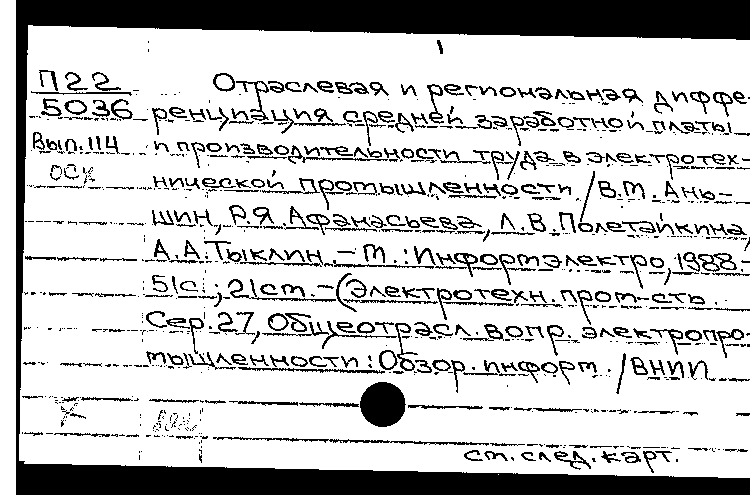 1
П22 Отраслевая и региональная диффе-
5036 ренциация средней заработной платы
Вып.114 и производительности труда в электротех-
ОСК нической промышленности / В.М. Ань-
шин, Р.Я. Афанасьева, Л.В. Полетайкина,
А.А. Тыклин. – М.: Информэлектро, 1988.–
51с.; 21см. – (Электротехн. пром-сть.
Сер. 27, Общеотрасл. вопр. электропро-
мышленности: Обзор. информ. / ВНИИ
см. след. карт.